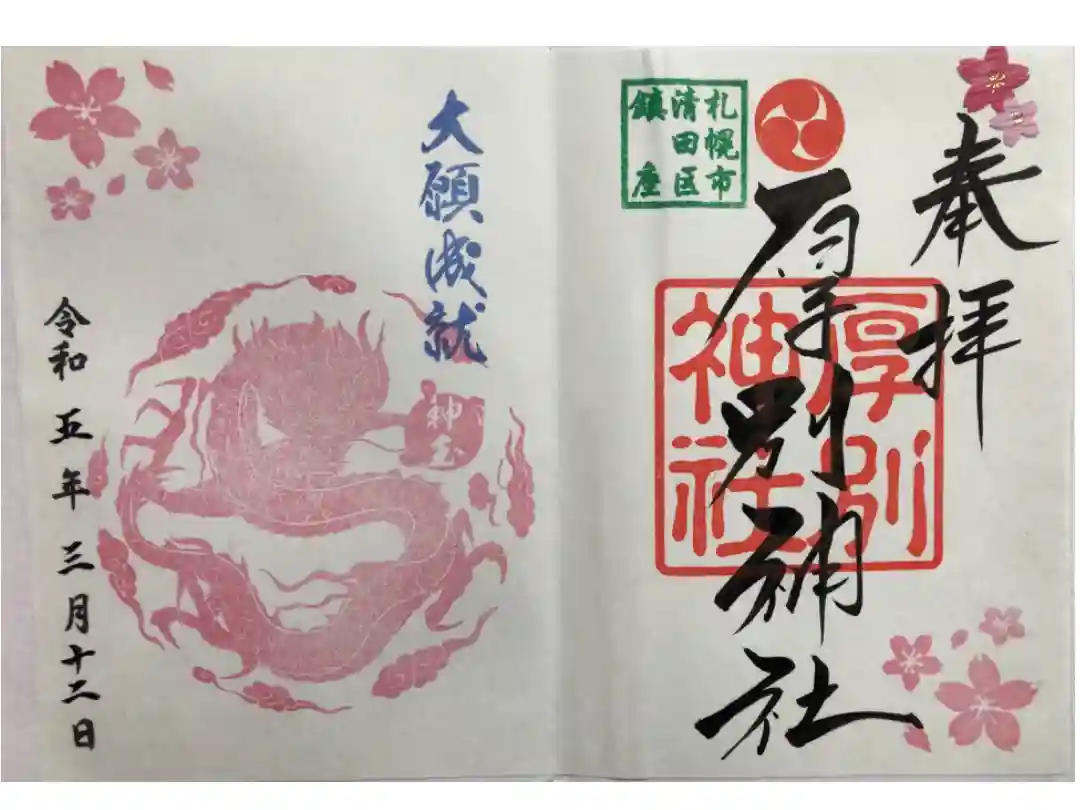 奉拝
札幌市
清田区
鎮座
厚別神社
厚別
神社
大願成就
神玉
令和五年三月十二日